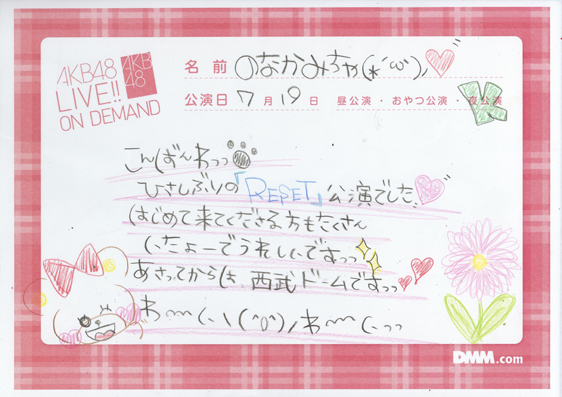 AKB48
LIVE!!
ON DEMAND
AKB
48
名前 のなかみちゃ(*´ω`)ノ
公演日 7月19日 昼公演・おやつ公演・夜公演
こんばんわっっ
ひさしぶりの「RESET」公演でした、
はじめて来てくださる方もたくさん
いたよーでうれしいですっっ
あさってからは 西武ドームですっっ
わ〜〜い\(^o^)/わ〜〜いっっ
DMM.com